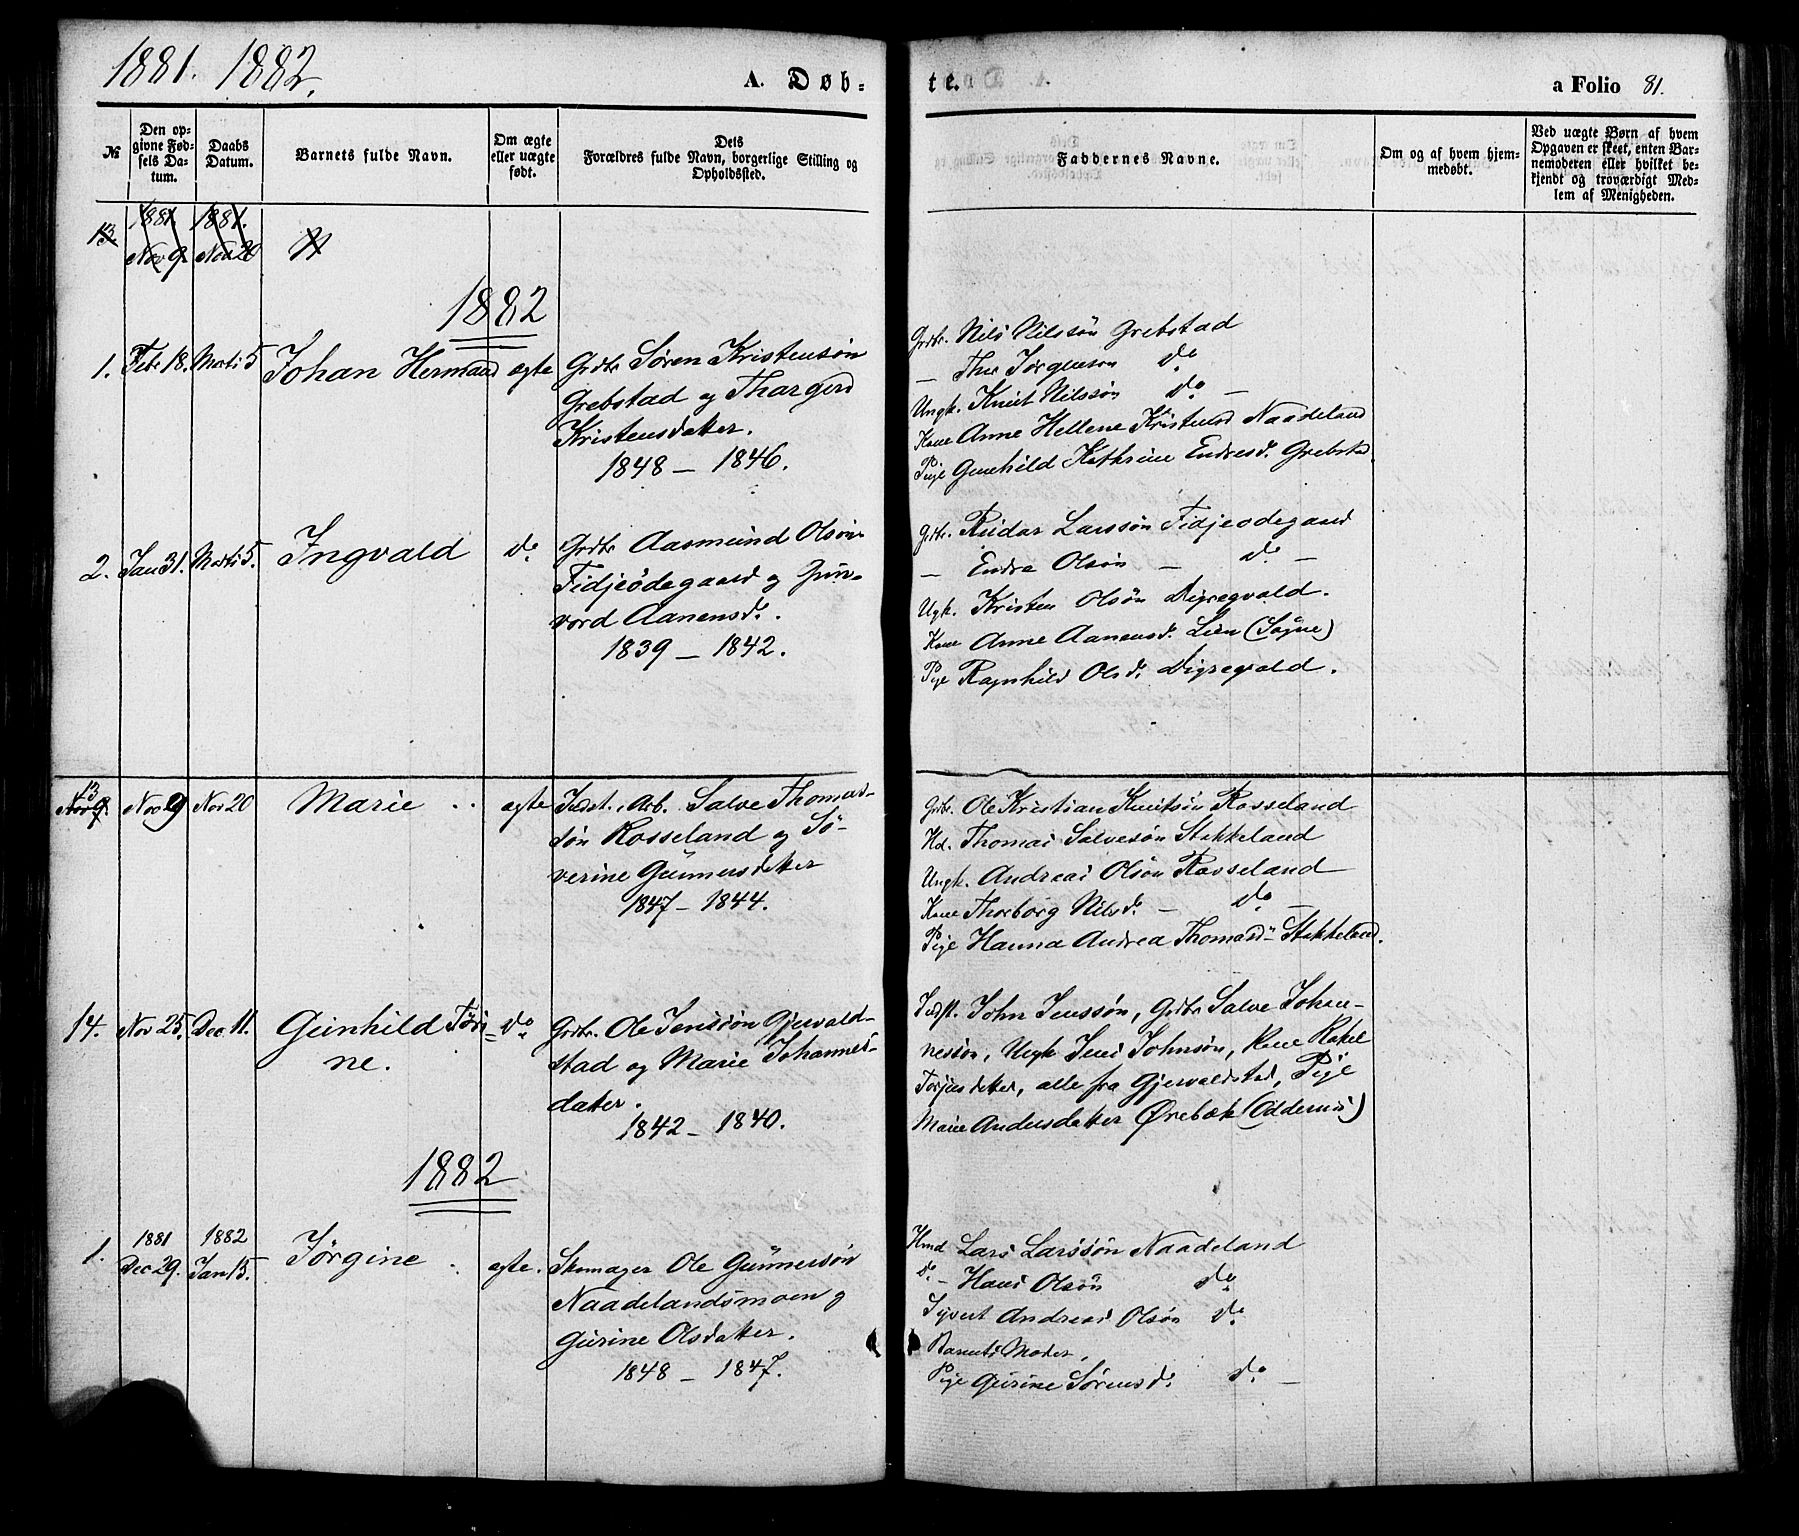 1881. 1882.
A. Døb-
te.
a Folio 81.
№
Den op-
givne Fød-
sels Da-
tum.
Daabs
Datum.
Barnets fulde Navn.
Om ægte
eller uægte
født.
Dets
Forældres fulde Navn, borgerlige Stilling og
Opholdssted.
Faddernes Navne.
Om og af hvem hjem-
medøbt.
Ved uægte Børn af hvem
Opgaven er skeet, enten Bar-
nemoderen eller hvilket be-
kjendt og troværdigt Med-
lem af Menigheden.
1881. 1881.
13. Nov 9. Nov 20
1882
1. Febr 18. Marts 5 Johan Hermand ægte Grdbr Søren Kristensøn
Grebstad og Thargerd
Kristensdatter.
1848 – 1846.
Grdbr. Nils Nilssøn Grebstad
— Thor Jørgensen do
Ungk. Knut Nilssøn do —
Kone Anne Hellene Kristensd Naadeland
Pige Gunhild Kathrine Endresd. Grebstad.
2. Jan 31. Marts 5. Ingvald do Grdbr Aasmund Olsøn
Fidjeødegaard og Gun-
vord Aanensd.
1839 – 1842.
Grdbr. Reidar Larssøn Fidjeødegaard
— Endre Olsøn — do —
Ugk. Kristen Olsøn Digregvald.
Kone Anne Aanensd. Lien (Søgne)
Pige Ragnhild Olsd. Digregvald.
13
Nov 9. Nov 9 Nov 20 Marie ægte Indst. Arb. Salve Thomas-
søn Rosseland og Sø-
verine Gunnersdatter
1847 – 1844.
Grdbr. Ole Kristian Knutsøn Rosseland
Hd. Thomas Salvesøn Stokkeland
Ungk. Andreas Olsøn Rosseland
Kone Thorborg Nilsd. — do —
Pige Hanna Andrea Thomasd. Stokkeland.
14. Nov 25. Dec 11. Gunhild Töri- do Grdbr. Ole Jenssøn Gjervald-
ne. stad og Marie Johannes-
datter.
1842 – 1840.
Indst. John Jenssøn, Grdbr Salve Johan-
nessøn, Ungk Jens Johnsøn, Kone Rakel
Torjusdatter, alle fra Gjervaldstad, Pige
Marie Andersdatter Ørebæk (Oddernes)
1882
1. 1881 1882
Dec 29. Jan 15. Jørgine ægte. Skomager Ole Gunnersøn
Naadelandsmoen og
Gurine Olsdatter.
1848 – 1847.
Hmd Lars Larssøn Naadeland
do – Hans Olsøn do
Syvert Andreas Olsøn do
Barnets Moder,
Pige Gurine Sørensd. do —